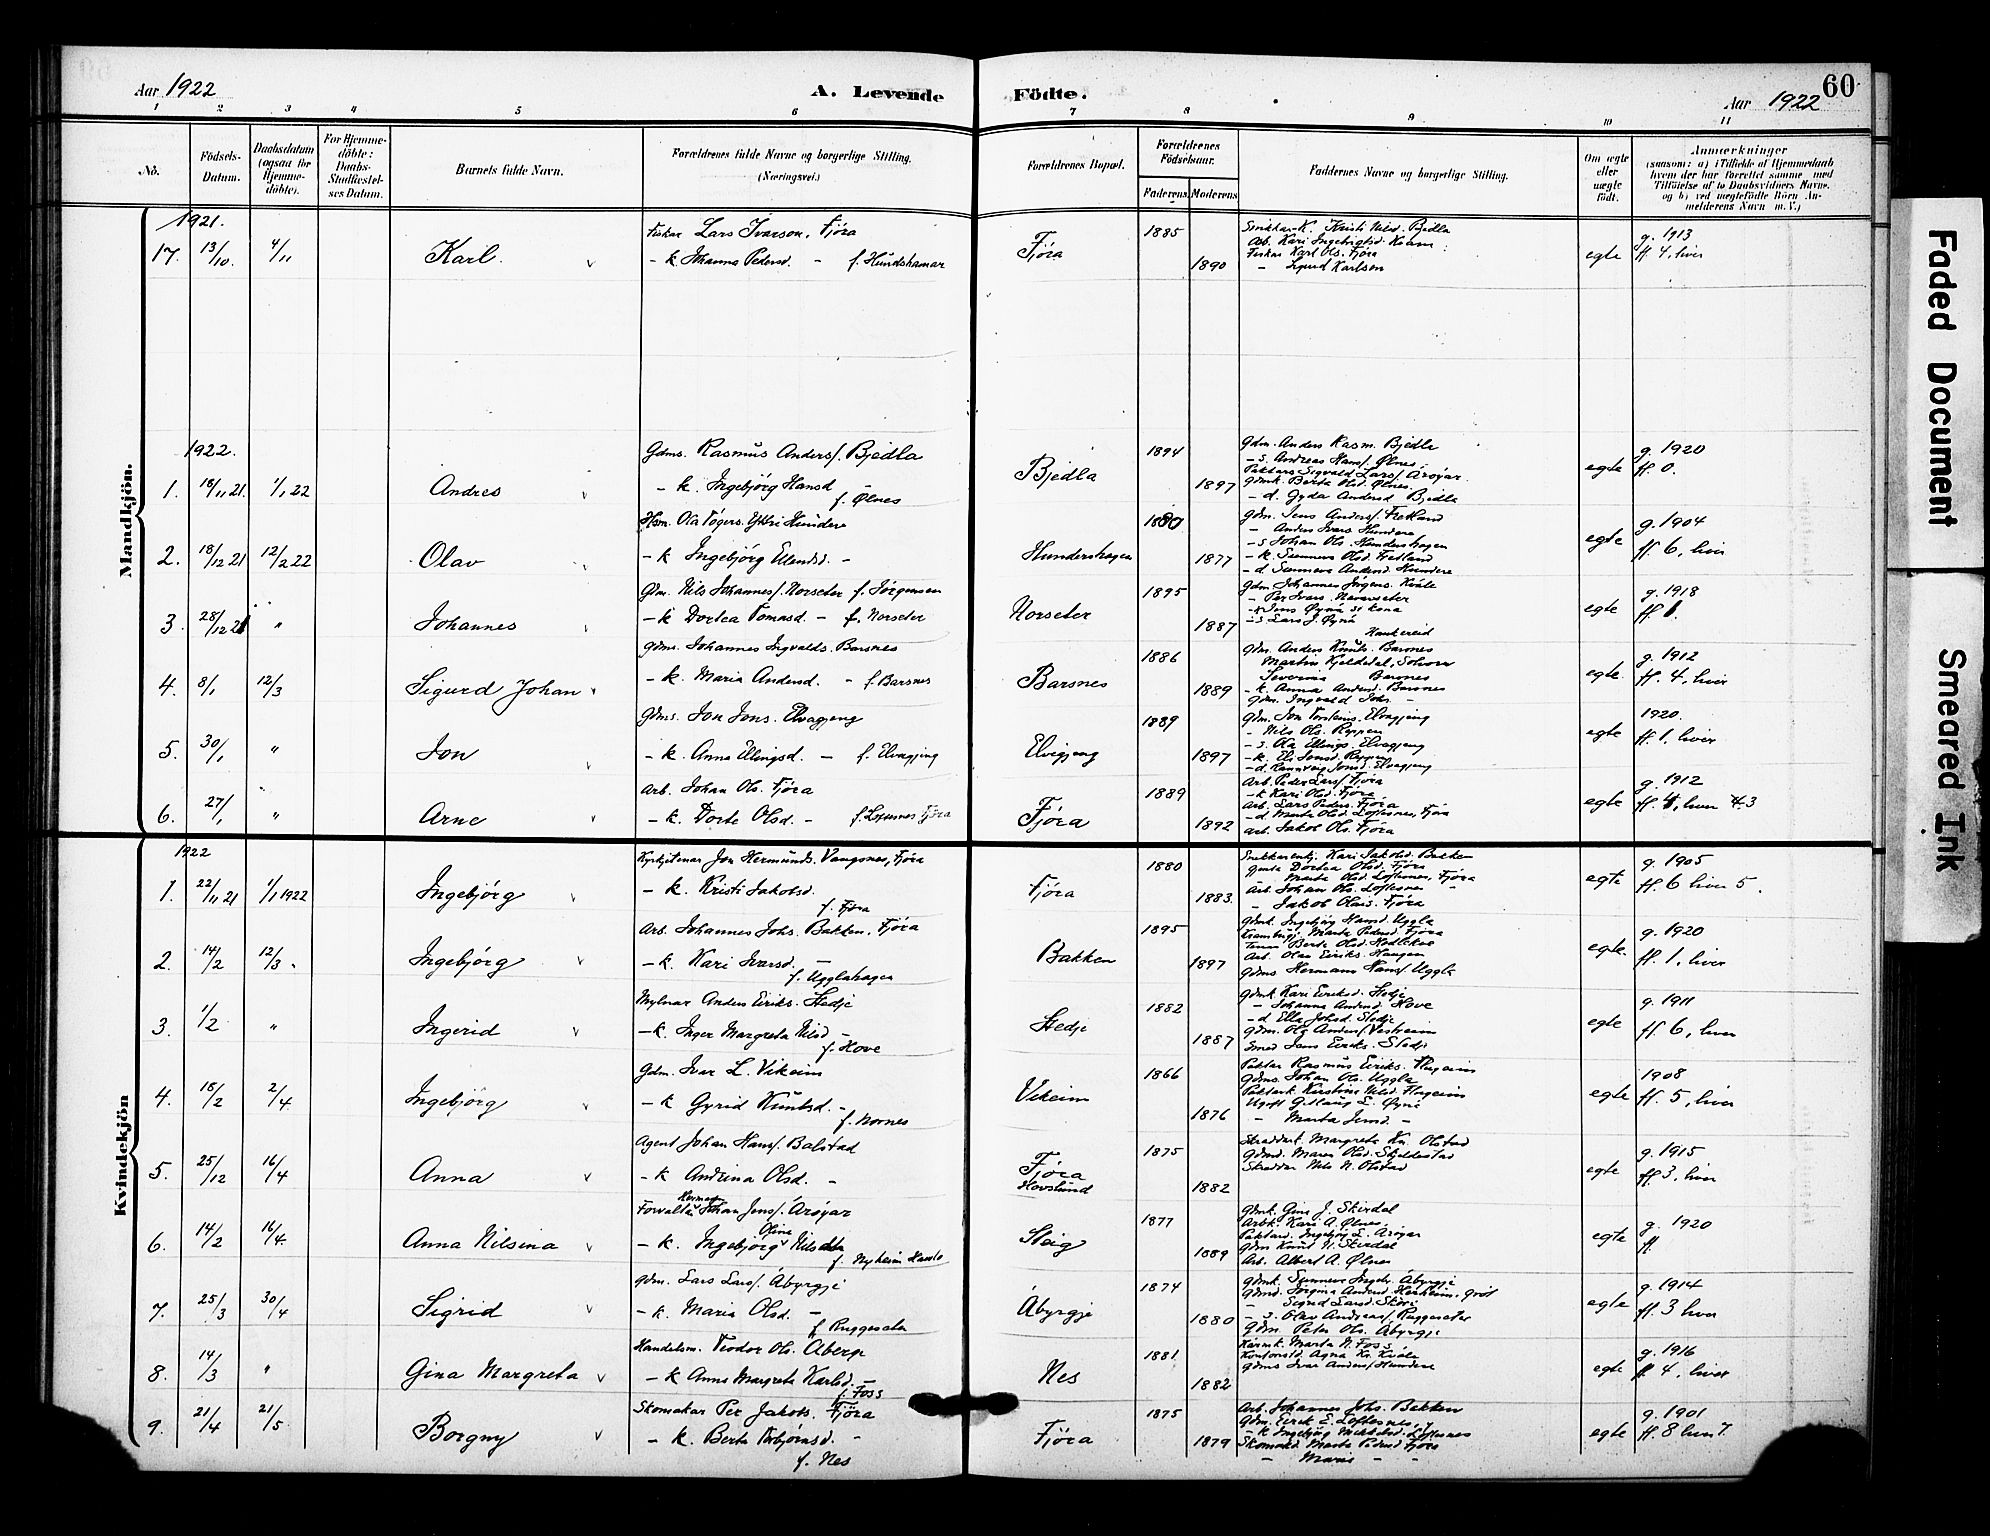 60
Aar 1922
A. Levende
Födte.
Aar 1922
1 2 3 4 5 6 7 8 9 10 11
No.
Födsels-Datum.
Daabsdatum (ogsaa for Hjemme-döbte).
For Hjemme-döbte: Daabs-Stadfæstel-ses Datum.
Barnets fulde Navn.
Forældrenes fulde Navne og borgerlige Stilling. (Næringsvei.)
Forældrenes Bopæl.
Forældrenes Födselsaar.
Faderens. Moderens.
Faddernes Navne og borgerlige Stilling.
Om ægte eller uægte födt.
Anmærkninger
(saasom: a) i Tilfælde af Hjemmedaab
hvem der har forrettet samme med
Tilföielse af to Daabsvidners Navne.
og b) ved uægtefödte Börn An-
melderens Navn m. V.)
Mandkjön.
1921.
17. 13/10. 4/11 Karl.
Fiskar Lars Ivarson, Fjøra
- k. Johanna Pedersd. - f. Hundshamar
Fjøra 1885 1890
Kristi Nilsd. Bjedla
Arb. Kari Ingebrigtsd.
Fiskar Karl Ols. Fjøra
- Sigurd Karlsen
egte
g. 1913
ff. 4, liver
1922.
1. 18/11 21. 1/1 22 Andres
Gdms. Rasmus Anders/. Bjedla
- k. Ingebjörg Hansd -
f. Ølnes
Bjedla 1894 1897
Gdm. Anders Rasm. Bjedla
- s. Andreas Hans/. Ølnes
Paktars. Sigvald Lars/. Årøyar
Gdmk. Berta Olsd. Ølnes.
- d. Gyda Andersd Bjedla
egte
g. 1920
ff. 0.
2. 18/12 21 12/2 22 Olav
Hsm. Ola Togers. Yttri Hundere
- k Ingebjörg Ellendsd. -
Hundershagen 1880 1877
Gdm. Jens Anders/. Fretland
- Anders Ivars Hundere
- s Johan Ols. Hundershagen
- k. Sunneva Olsd. Fretland
- d. Sunneva Andersd. Hundere
egte
g. 1904
ff. 6, liver
3. 28/12 21 " Johannes
Gdm. Nils Johannes/. Norseter f. Jørgensen
- k Dortea Tomasd. - f. Norseter
Norseter 1895 1887
Gdm Johannes Jörgens. Kvåle
- Per Ivars. Navarseter
- Jens Øynå se kona
- s Lars J. Øynå
egte
g. 1918
ff. 1.
4. 8/1 12/3 Sigurd Johan
Gdms. Johannes Ingvalds. Barsnes
- k. Maria Andersd. - f. Barsnes
Barsnes 1886 1889
Gdm. Anders Knuts. Barsnes
Martin Kjeldedal,
Severina Barsnes
- k. Anna Andersd. Barsnes
Gdm. Ingvald Johs -
egte.
g. 1912
ff. 4, liver
5. 30/1 " Jon
Gdms. Jon Jons. Elvagjeng
- k. Anna Ellingsd. - f. Elvagjeng
Elvigjeng 1889 1897
Gdm. Jon Torsteins. Elvagjeng
- Nils Ols. Reppen
- s. Ola Ellings. Elvagjeng
- k. Eli Jonsd. Reppen
- d. Rannveig Jonsd. Elvagjeng
egte
1920.
ff. 1, liver
6. 27/1 " Arne
Arb. Johan Ols. Fjøra
- k. Dorte Olsd. - f. Loftesnes Fjøra
Fjøra 1889 1892
Arb. Peder Lars/. Fjøra
- k Kari Olsd. Fjøra
Arb. Lars Peders. Fjøra
- d. Marta Olsd. Loftesnes, Fjøra
Arb. Jakob Ols. Fjøra
egte
g. 1912
ff. 4, liver 3
Kvindekjön
1922
1. 22/11 21 1/1 1922 Ingebjörg
Kyrkjetenar Jon Hermunds. Vangsnes, Fjøra
- k. Kristi Jakobsd.
f. Fjøra
Fjøra 1880 1883.
Kari Jakobsd. Bakken
Gjenta Dortea Olsd. Fjøra
- Marta Olsd. Loftesnes, Fjøra
Arb. Johan Ols. Loftesnes -
- Jakob Olais. Fjøra
egte
g. 1905
ff. 6 liver 5.
2. 14/2 12/3. Ingebjörg
Arb. Johannes Johs. Bakken. Fjøra
- k. Kari Ivarsd. -
f. Ugglahagen
Bakken 1895 1897
Gdmk. Ingebjörg Hansd. Uggla
Marta Pedersd. Fjøra
Berta Olsd. Hedlekve
Arb. Olav Eiriks. Haugen
Gdms Hermann Hans/ Uggla
egte.
g. 1920
ff. 1, liver
3. 1/2 " Ingerid
Mylnar Anders Eiriks. Stedje
- k. Inger Margreta Nilsd -
f. Hove
Stedje 1882 1887
Gdmk. Kari Eiriksd. Stedje
- Johanna Andersd. Hove
- d. Ella Johsd. Stedje
Gdm. Ola Anders/ Vestreim
Smed Jens Eiriks. Stedje
egte
g. 1911
ff. 6, liver
4. 18/2 2/4 Ingebjörg
Gdm. Ivar L. Vikeim
- k Gyrid Knutsd. -
f. Nornes
Vikeim 1866 1876
Paktar Rasmus Eiriks. Flugeim
Gdms. Johan Ols. Uggla
Paktark. Kirstina Nilsd. Flugeim
Ugift Gitlaug L. Øynå
- Marta Jensd. -
egte
1908
ff. 5, liver
5. 25/12 16/4 Anna
Agent Johan Hans/. Balstad
- k Andrina Olsd. -
Fjøra
Hovslund 1875 1882
Skreddark. Margreta Kn. Olstad
Gdmd. Maren Olsd. Skjeldestad
Skreddar Nils N. Olstad
egte
g. 1915
ff. 3, liver
6. 14/2 16/4. Anna Nilsina
Herman
Forvaltar Johan Jens/. Årøyar
Olina
- k. Ingebjörg Nilsdtr
f. Nyheim
Steig 1877 1889
Gdmk. Gina J. Skirdal
Arbk. Kari A. Ølnes.
Paktard. Ingebjög L. Årøyar
Gdm Knut N. Skirdal
Arb. Albert A. Ølnes
egte
g. 1920
ff.
7. 25/3 30/4 Sigrid
Gdm. Lars Lars/. Åbyrgje
- k. Maria Olsd. -
f. Ruggeseter
Åbyrgje 1874 1880
Gdmk. Sunneva Ingebr. Åbyrgje
Gdmd. Jorgina Andersd
- Sigrid Larsd.
- s. Olav Andreas/. Ruggeseter
Gdm. Peter Ols. Åbyrgje
egte
g. 1914
ff 3 liver
8. 14/3 " Gina Margreta
Handelsm. Teodor Ols. Åberge
- k Anna Margreta Karlsd. -
f. Foss
Nes 1881 1882
Marta N. Foss
Kontorist Agna Kr. Kvåle
Gdms Ivar Anders/ Hundere
egte
g. 1916
ff 4, liver
9. 21/4 21/5 Borgny
Skomakar Per Jakobs. Fjøra
- k. Berta Torbjørnsd. -
f. Nes
Fjøra 1875 1879
Arb. Johannes Johs. Bakken
Gdm. Eirik E. Loftesnes,
- k Ingebjörg Mikkelsd. Loftesnes
Skomakd. Marta Pedersd Fjøra
- Maria - -
egte
g. 1901
ff. 8 liver 7.
Faded Document
Smeared Ink